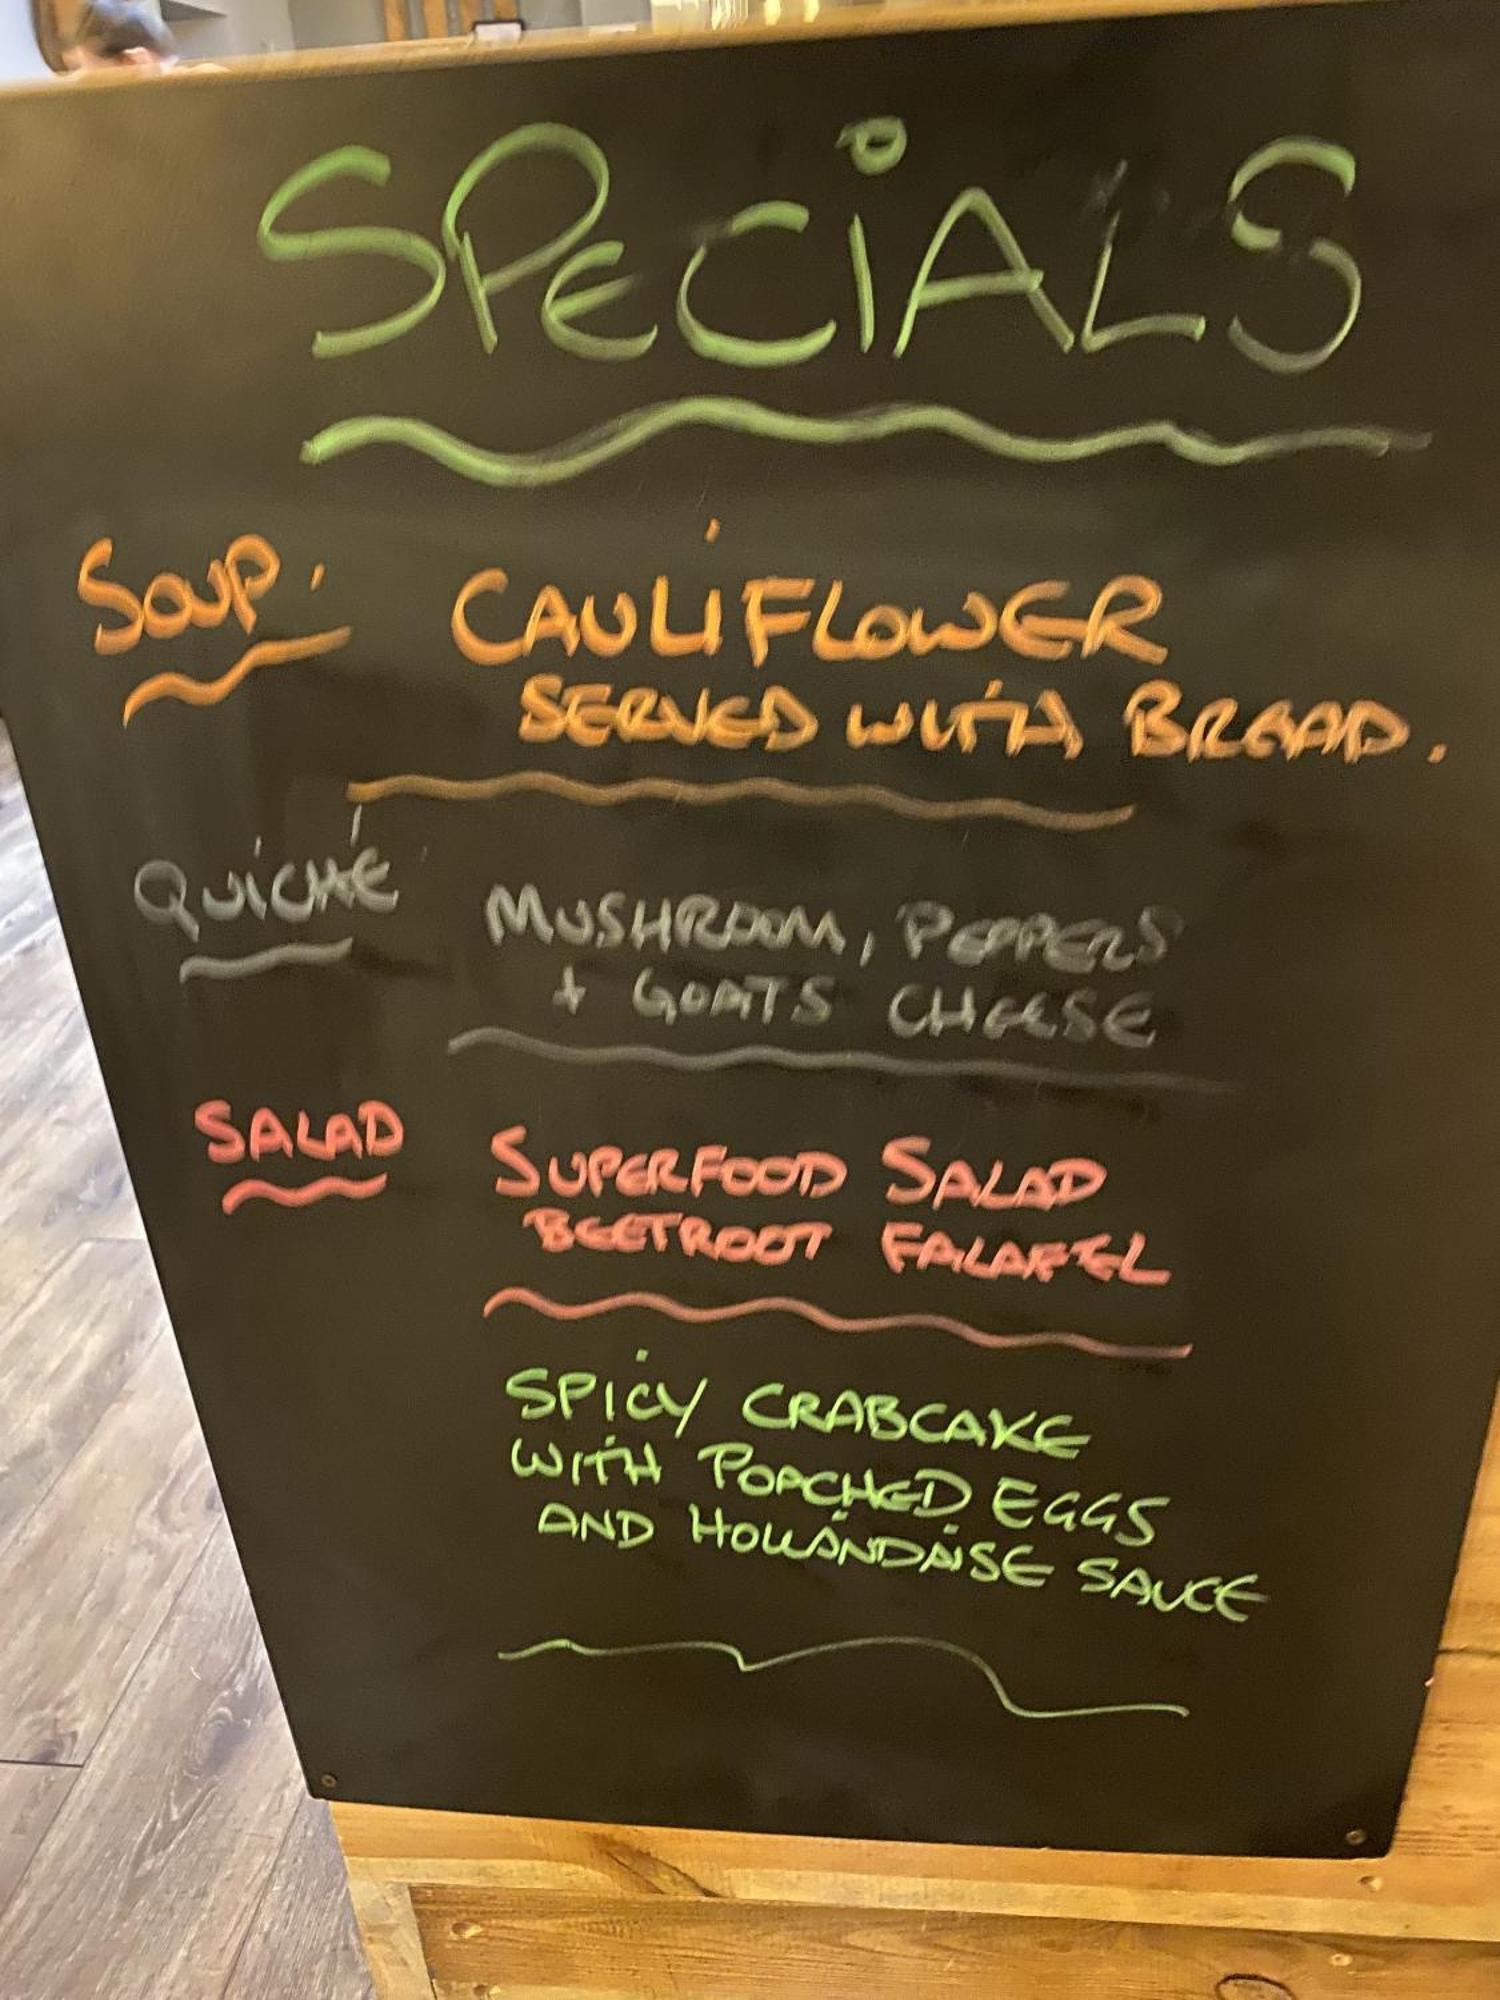 SPECiALS
SOUP. CAULiFLOWER
SERVED WITH BREAD.
QUiCHE MUSHROOM, PEPPERS
+ GOATS CHEESE
SALAD SUPERFOOD SALAD
BEETROOT FALAFEL
SPiCY CRABCAKE
WiTH POACHED EGGS
AND HOLLANDAiSE SAUCE